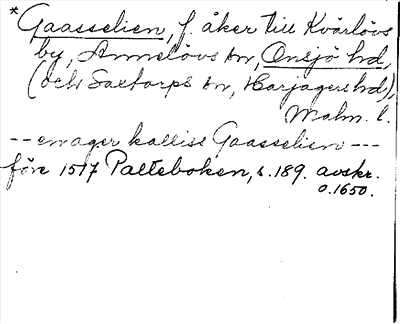 *Gaasselien, f. åker till Kvärlövs
by, Annelövs sn, Onsjö hd,
(och Saxtorps sn, Harjagers hd),
Malm. l.
-- en ager kalliss Gaasselien ---
före 1517 Palteboken, s. 189. avskr.
o. 1650.